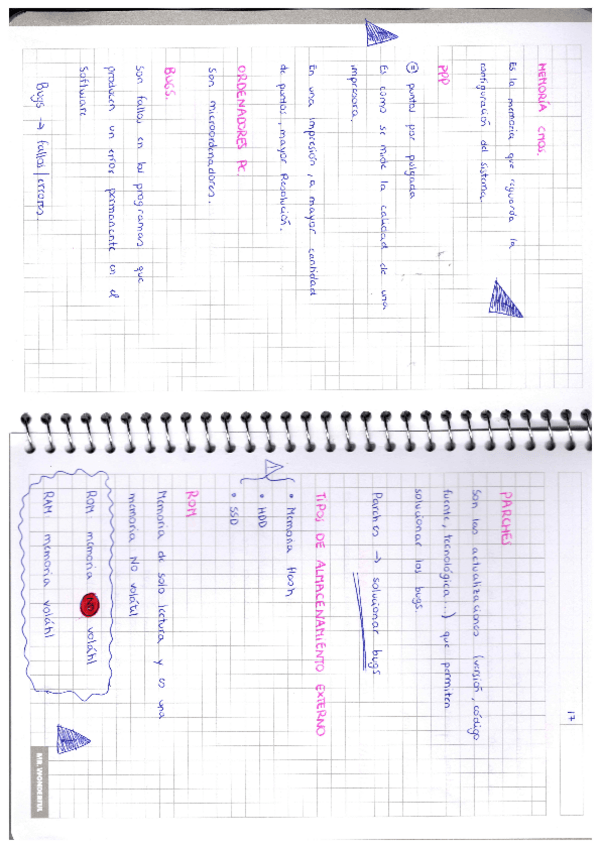 MEMORIA CMOS.
Es la memoria que guarda la
configuración del sistema.
PPP
(=) puntos por pulgada
Es como se mide la calidad de una
impresora.
En una impresión, a mayor cantidad
de puntos, mayor Resolución.
ORDENADORES PC.
son microordenadores.
BUGS.
son fallos en los programas que
producen un error permanente en el
software
Bugs → fallos/errores.
17
PARCHES
son las actualizaciones (versión, código
fuente, tecnológica...) que permiten
solucionar los bugs.
Parches → solucionar bugs
TIPOS DE ALMACENAMIENTO EXTERNO
• Memoria flash
• HDD
• SSD
ROM
Memoria de solo lectura y es una
memoria NO volátil
ROM memoria NO volátil
RAM memoria volátil
MR. WONDERFUL